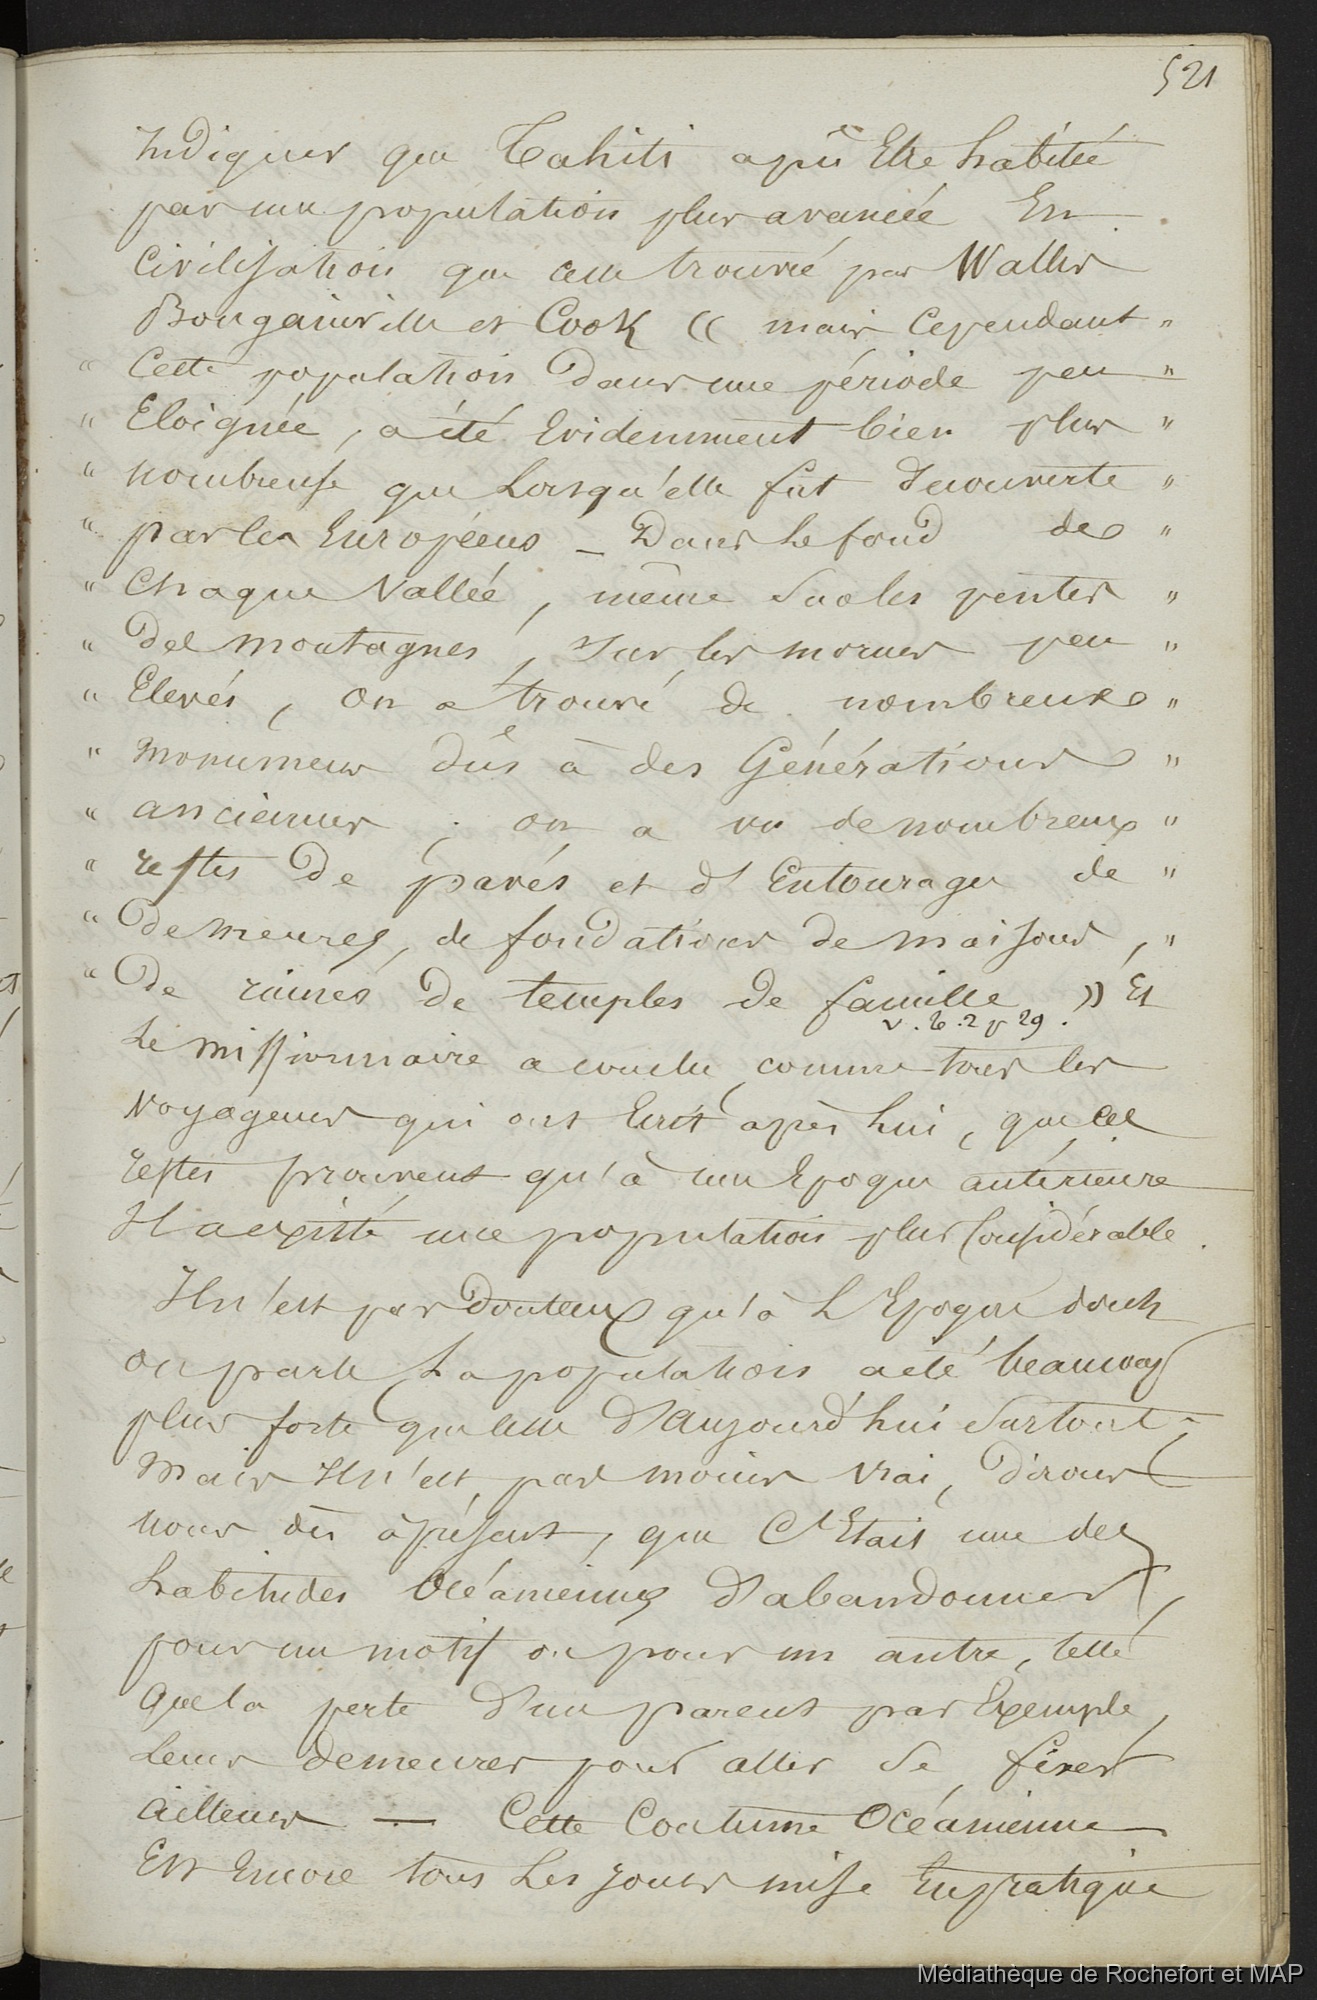 521
Indiquer que Tahiti a pû Etre habitée
par une population plus avancée En
Civilisation que celle trouvée par Wallis
Bougainville et Cook (( mais Cependant "
" Cette population dans une période peu "
" Eloignée, a été Evidemment bien plus "
" nombreuse que Lorsqu'elle fut découverte "
" par les Européens _ Dans le fond de "
" Chaque Vallée, même sur les pentes "
" des montagnes, sur les mornes peu "
" Elevés, on a trouvé de nombreux "
" monumens dûs à des Générations "
" anciennes ; on a vu de nombreux "
" restes de pavés et d'Entourages de "
" demeures, de fondations de maisons, "
" de ruines de temples de famille )) Et
v. t. 2 p 29.
Le missionnaire a conclu, comme tous les
Voyageurs qui ont Ecrit après Lui, que ces
restes prouvent qu'à une Epoque antérieure
Il a existé une population plus Considérable.
Il n'est pas douteux qu'à L'Epoque dont
on parle La population a été beaucoup
plus forte que celle d'Aujourd'hui surtout ;
mais Il n'est pas moins Vrai, dirons
nous dès à présent, que C'Etait une des
habitudes Océaniennes d'abandonner,
pour un motif ou pour un autre, telle
que la perte d'un parent par Exemple,
Leurs demeures pour aller se fixer
ailleurs — Cette Coutume Océanienne
Est Encore tous Les jours mise En pratique
Médiathèque de Rochefort et MAP